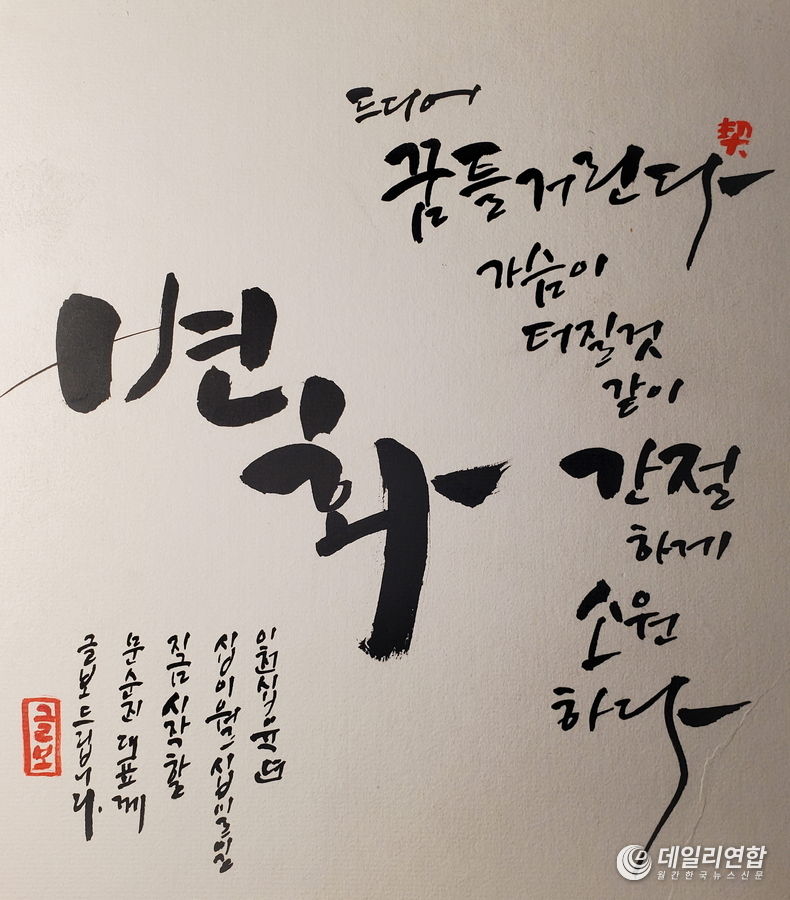 드디어
꿈틀거린다
契
가슴이
터질것
같이
간절
하게
소원
하다
변화
이천십육년
십이월
지금 시작할
문순진 대표께
글보드립니다.
글보
데일리연합
월간한국뉴스신문